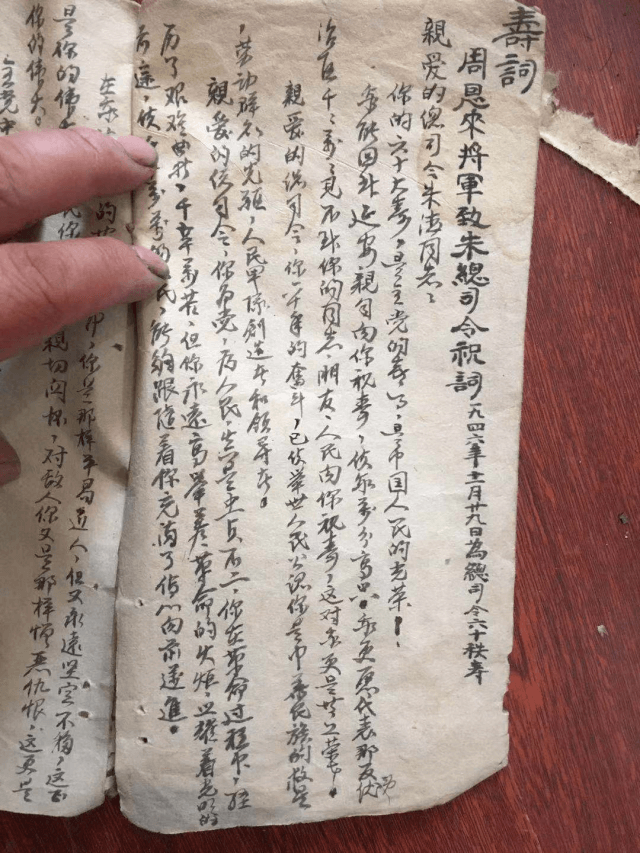 壽詞
周恩來將軍致朱總司令祝詞 一九四六年十一月廿九日為總司令六十秩壽
親爱的總司令朱德同志:
你的六十大壽,是全党的喜了,是中国人民的光荣!
我能回到延安親自向你祝壽,使我萬分高兴。我更愿代表那反动
治区千千萬萬見不到你的同志、朋友、人民向你祝壽,这对我更是无上荣幸。
親爱的總司令,你一千年的奋斗,已使举世人民公認你是中華民族的救星
,劳动群众的先驱,人民軍隊創造者和領导者。
親爱的总司令,你为党,为人民,真是忠貞不二,你在革命过程中,经
历了艰难曲折,千辛萬苦,但你永遠高舉着革命的火炬,照耀着光明的
前途,使萬的民,能夠跟隨着你充满了信心向前邁進。
在
的
中,你是那样平易近人,但又永遠坚定不移,这
民你 親切関怀,对敌人你又是那样憎恶仇恨,这更是
是你的伟大
你的伟大。
全党中